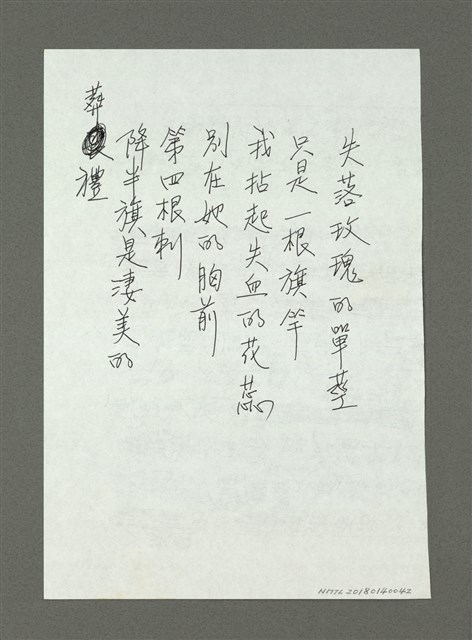 失落玫瑰的單莖
只是一根旗竿
我拈起失血的花蕊
別在她的胸前
第四根刺
降半旗是淒美的
葬禮
NMTL20180140042